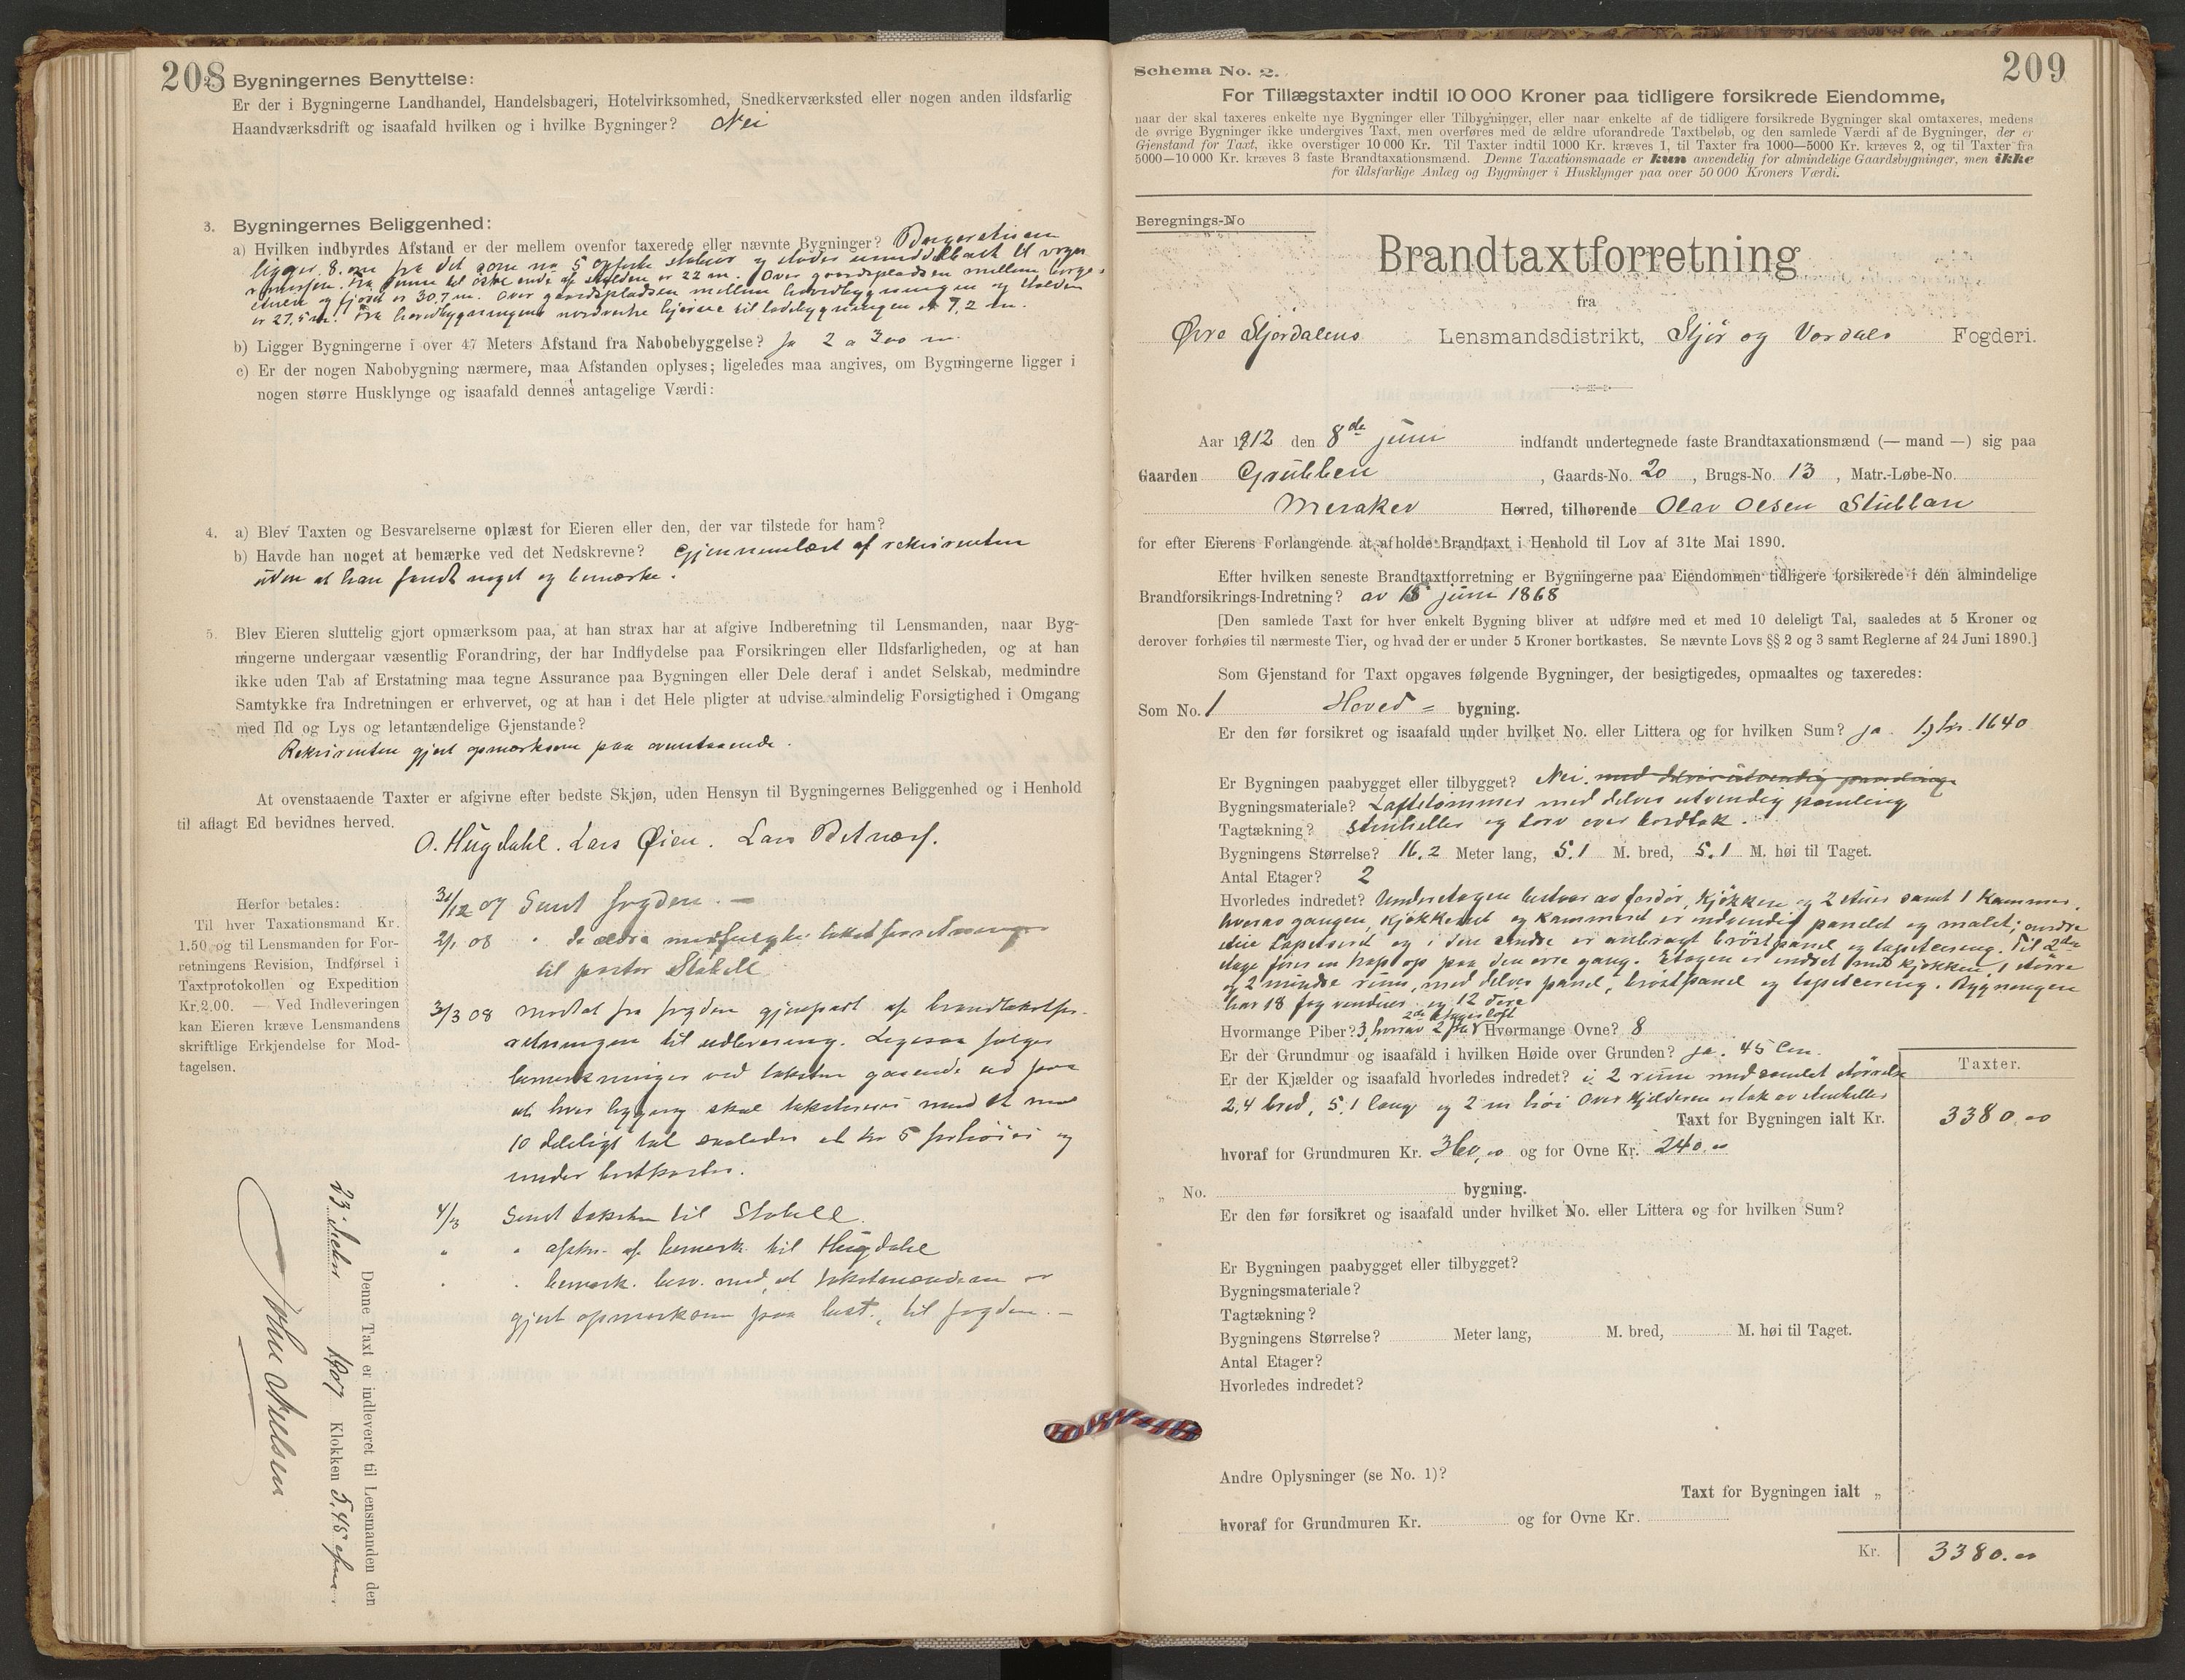 208
2. Bygningernes Benyttelse:
Er der i Bygningerne Landhandel, Handelsbageri, Hotelvirksomhed, Snedkerværksted eller nogen anden ildsfarlig
Haandværksdrift og isaafald hvilken og i hvilke Bygninger? Nei
3. Bygningernes Beliggenhed:
a) Hvilken indbyrdes Afstand er der mellem ovenfor taxerede eller nævnte Bygninger? Borgerstuen
ligger 8. m fra det som no 5 opførte stabur og støder umiddelbart til vogn
remissen. Fra denne til østre ende af stalden er 22 m. Over gaardspladsen mellem borge-
stuen og fjøset er 30,7 m. Over gaardspladsen mellem hovedbygningen og stalden
er 27,5 m. Fra hovedbygningens nordvestre hjørne til ladebygningen er 7,2 m.
b) Ligger Bygningerne i over 47 Meters Afstand fra Nabobebyggelse? Ja 2 a 300 m.
c) Er der nogen Nabobygning nærmere, maa Afstanden oplyses; ligeledes maa angives, om Bygningerne ligger i
nogen større Husklynge og isaafald dennes antagelige Værdi:
4. a) Blev Taxten og Besvarelserne oplæst for Eieren eller den, der var tilstede for ham?
b) Havde han noget at bemærke ved det Nedskrevne? Gjennemlæst af rekvirenten
uden at han fandt noget og bemærke.
5. Blev Eieren sluttelig gjort opmærksom paa, at han strax har at afgive Indberetning til Lensmanden, naar Byg-
ningerne undergaar væsentlig Forandring, der har Indflydelse paa Forsikringen eller Ildsfarligheden, og at han
ikke uden Tab af Erstatning maa tegne Assurance paa Bygningen eller Dele deraf i andet Selskab, medmindre
Samtykke fra Indretningen er erhvervet, og at han i det Hele pligter at udvise almindelig Forsigtighed i Omgang
med Ild og Lys og letantændelige Gjenstande?
Rekvirenten gjort opmærksom paa ovenstaaende.
At ovenstaaende Taxter er afgivne efter bedste Skjøn, uden Hensyn til Bygningernes Beliggenhed og i Henhold
til aflagt Ed bevidnes herved.
O. Hugdahl. Lars Øien. Lars
Herfor betales:
Til hver Taxationsmand Kr.
1.50 og til Lensmanden for For-
retningens Revision, Indførsel i
Taxtprotokollen og Expedition
Kr. 2.00. — Ved Indleveringen
kan Eieren kræve Lensmandens
skriftlige Erkjendelse for Mod-
tagelsen.
31/12 07 Sendt fogden. —
2/1 08 " de ældre takstforretninger
til pastor Stabell
3/3 08 modtat fra fogden gjenpart af brandtakstfor-
retningen til udlevering. Ligesaa følger
bemerkninger ved taksten gaaende ud paa
at hver bygning skal taksteres med et med
10 deleligt tal saaledes at kr 5 forhøies og
under bortkastes.
4/3 Sendt taksten til Stabell.
" " afskr. af bemerk. til Hugdahl
" " bemerk. besv. med, at takstmændene er
gjort opmerksom paa best., til fogden. —
Denne Taxt er indleveret til Lensmanden den
23 decbr 1907 Klokken 5,45 efm.
John Auelsen
209
Schema No. 2.
For Tillægstaxter indtil 10 000 Kroner paa tidligere forsikrede Eiendomme,
naar der skal taxeres enkelte nye Bygninger eller Tilbygninger, eller naar enkelte af de tidligere forsikrede Bygninger skal omtaxeres, medens
de øvrige Bygninger ikke undergives Taxt, men overføres med de ældre uforandrede Taxtbeløb, og den samlede Værdi af de Bygninger, der er
Gjenstand for Taxt, ikke overstiger 10 000 Kr. Til Taxter indtil 1000 Kr. kræves 1, til Taxter fra 1000—5000 Kr. kræves 2, og til Taxter fra
5000—10 000 Kr. kræves 3 faste Brandtaxationsmænd. Denne Taxationsmaade er kun anvendelig for almindelige Gaardsbygninger, men ikke
for ildsfarlige Anlæg og Bygninger i Husklynger paa over 50 000 Kroners Værdi.
Beregnings-No
Brandtaxtforretning
fra
Øvre Stjørdalens Lensmandsdistrikt, Stjør og Værdals Fogderi.
Aar 1912 den 8de juni indfandt undertegnede faste Brandtaxationsmænd (— mand —) sig paa
Gaarden Grubben, Gaards-No. 20, Brugs-No. 13, Matr.-Løbe-No.
Meraker Herred, tilhørende Olav Olsen Stubban
for efter Eierens Forlangende at afholde Brandtaxt i Henhold til Lov af 31te Mai 1890.
Efter hvilken seneste Brandtaxtforretning er Bygningerne paa Eiendommen tidligere forsikrede i den almindelige
Brandforsikrings-Indretning? av 15 juni 1868
[Den samlede Taxt for hver enkelt Bygning bliver at udføre med et med 10 deleligt Tal, saaledes at 5 Kroner og
derover forhøies til nærmeste Tier, og hvad der er under 5 Kroner bortkastes. Se nævnte Lovs §§ 2 og 3 samt Reglerne af 24 Juni 1890.]
Som Gjenstand for Taxt opgaves følgende Bygninger, der besigtigedes, opmaaltes og taxeredes:
Som No. 1 Hoved= bygning.
Er den før forsikret og isaafald under hvilket No. eller Littera og for hvilken Sum? ja. 1) kr. 1640
Er Bygningen paabygget eller tilbygget? Nei. med delvis utvendig paneling
Bygningsmateriale? Laftetømmer med delvis utvendig paneling
Tagtækning? Stenheller og torv over bordtak.
Bygningens Størrelse? 16.2 Meter lang, 5.1 M. bred, 5.1 M. høi til Taget.
Antal Etager? 2
Hvorledes indredet? Underetagen bestaar av fordør, kjøkken og 2 stuer samt 1 kammer,
hvorav gangen, kjøkkenet og kammeret er indvendig panelet og malet; andre
stue tapetseret og i den andre er anbragt brøstpanel og tapetsering. Til 2den
etage føres en trap op paa den øvre gang. Etagen er indredet med kjøkken, 1 større
og 2 mindre rum, med delvis panel, brøstpanel og tapetsering. Bygningen
har 18 fag vinduer og 12 døre
Hvormange Piber? 3, hvorav 2 fra 2den etages loft Hvormange Ovne? 8
Er der Grundmur og isaafald i hvilken Høide over Grunden? ja. 45 Cm.
Er der Kjælder og isaafald hvorledes indredet? i 2 rum med samlet størrelse
2,4 bred, 5,1 lang og 2 m høi Over kjelderen er tak av stenheller
Taxter.
Taxt for Bygningen ialt Kr. 3380.00
hvoraf for Grundmuren Kr. 360,00 og for Ovne Kr. 240.00
„ No. bygning.
Er den før forsikret og isaafald under hvilket No. eller Littera og for hvilken Sum?
Er Bygningen paabygget eller tilbygget?
Bygningsmateriale?
Tagtækning?
Bygningens Størrelse? Meter lang, M. bred, M. høi til Taget.
Antal Etager?
Hvorledes indredet?
Andre Oplysninger (se No. 1)?
Taxt for Bygningen ialt „
hvoraf for Grundmuren Kr. og for Ovne Kr.
Kr. 3380.00